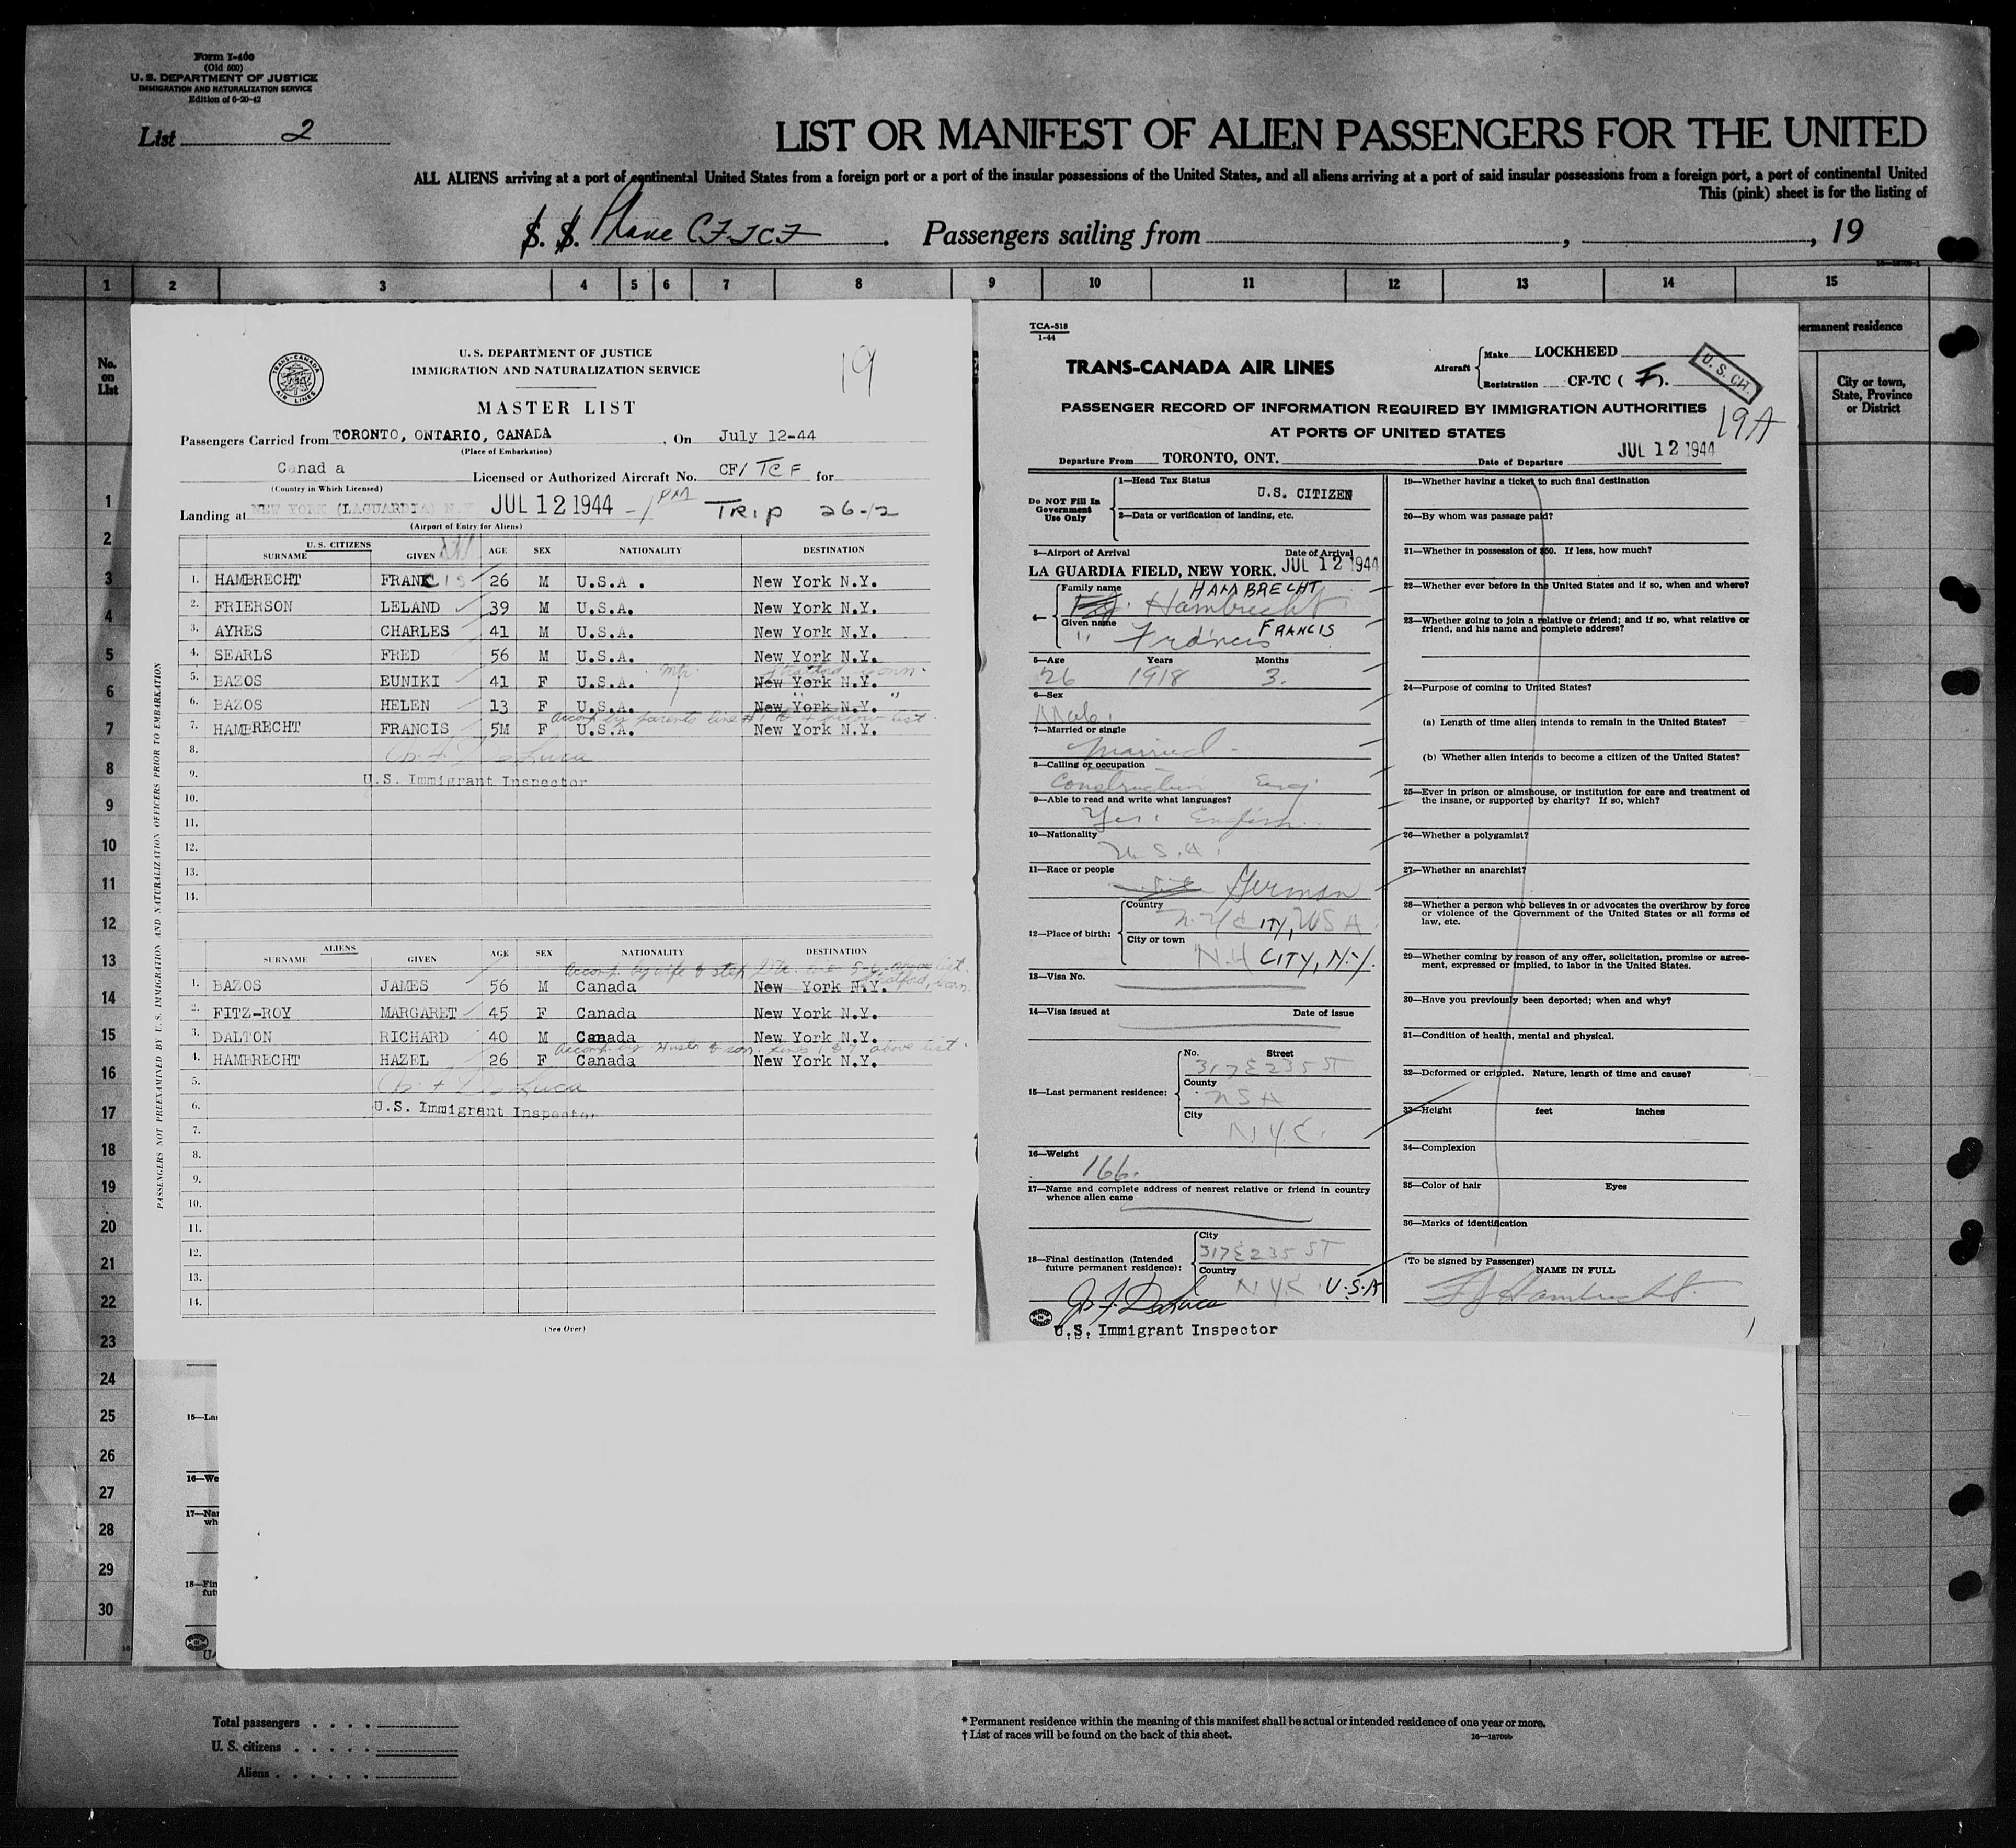 Form I-400
(Old 500)
U. S. DEPARTMENT OF JUSTICE
IMMIGRATION AND NATURALIZATION SERVICE
Edition of 6-20-42
List 2
LIST OR MANIFEST OF ALIEN PASSENGERS FOR THE UNITED
ALL ALIENS arriving at a port of continental United States from a foreign port or a port of the insular possessions of the United States, and all aliens arriving at a port of said insular possessions from a foreign port, a port of continental United
This (pink) sheet is for the listing of
S. S. Plane CF-TCF. Passengers sailing from , , 19
1 2 3 4 5 6 7 8 9 10 11 12 13 14 15
No. on List
ermanent residence
City or town, State, Province or District
1
2
3
4
5
6
7
8
9
10
11
12
13
14
15
16
17
18
19
20
21
22
23
24
25
26
27
28
29
30
TRANS-CANADA AIR LINES
U. S. DEPARTMENT OF JUSTICE
IMMIGRATION AND NATURALIZATION SERVICE
19
MASTER LIST
Passengers Carried from TORONTO, ONTARIO, CANADA, On July 12-44
(Place of Embarkation)
Canad a Licensed or Authorized Aircraft No. CF/ TCF for
(Country in Which Licensed)
Landing at NEW YORK (LAGUARDIA) N.Y. JUL 12 1944 - 1 PM TRIP 26-12
(Airport of Entry for Aliens)
PASSENGERS NOT PREEXAMINED BY U.S. IMMIGRATION AND NATURALIZATION OFFICERS PRIOR TO EMBARKATION
U. S. CITIZENS
SURNAME GIVEN AGE SEX NATIONALITY DESTINATION
1. HAMBRECHT FRANCIS 26 M U.S.A. New York N.Y.
2. FRIERSON LELAND 39 M U.S.A. New York N.Y.
3. AYRES CHARLES 41 M U.S.A. New York N.Y.
4. SEARLS FRED 56 M U.S.A. New York N.Y.
Stratford Conn.
5. BAZOS EUNIKI 41 F U.S.A. New York N.Y.
6. BAZOS HELEN 13 F U.S.A. New York N.Y.
accomp by parents line #1 & 4 below list.
7. HAMBRECHT FRANCIS 5M F U.S.A. New York N.Y.
8.
9. U.S. Immigrant Inspector
10.
11.
12.
13.
14.
ALIENS
SURNAME GIVEN AGE SEX NATIONALITY DESTINATION
accomp. by wife & step dtr. lines 5-6 above list.
Stratford, Conn.
1. BAZOS JAMES 56 M Canada New York N.Y.
2. FITZ-ROY MARGARET 45 F Canada New York N.Y.
3. DALTON RICHARD 40 M Canada New York N.Y.
accomp. by husb. & son. lines 1 & 7 above list.
4. HAMBRECHT HAZEL 26 F Canada New York N.Y.
5.
6. U.S. Immigrant Inspector
7.
8.
9.
10.
11.
12.
13.
14.
(See Over)
TCA-518
1-44
TRANS-CANADA AIR LINES
Aircraft Make LOCKHEED
Registration CF-TC ( F ).
U. S. CIT.
PASSENGER RECORD OF INFORMATION REQUIRED BY IMMIGRATION AUTHORITIES
AT PORTS OF UNITED STATES
19A
Departure From TORONTO, ONT. Date of Departure JUL 12 1944
Do NOT Fill In Government Use Only
1—Head Tax Status U.S. CITIZEN
2—Data or verification of landing, etc.
3—Airport of Arrival Date of Arrival
LA GUARDIA FIELD, NEW YORK. JUL 12 1944
4— Family name HAMBRECHT
Hambrecht
Given name FRANCIS
Francis
5—Age Years Months
26 1918 3.
6—Sex
Male.
7—Married or single
Married -
8—Calling or occupation
Construction Eng.
9—Able to read and write what languages?
Yes. English.
10—Nationality
U.S.A.
11—Race or people
German
12—Place of birth: Country
N.Y CITY, USA
City or town
N.Y CITY, N.Y.
13—Visa No.
14—Visa issued at Date of issue
15—Last permanent residence: No. Street
317 E 235 ST
County
USA
City
N.Y.C.
16—Weight
166.
17—Name and complete address of nearest relative or friend in country
whence alien came
18—Final destination (Intended future permanent residence): City
317 E 235 ST
Country
N.Y.C U.S.A
U.S. Immigrant Inspector
19—Whether having a ticket to such final destination
20—By whom was passage paid?
21—Whether in possession of $50. If less, how much?
22—Whether ever before in the United States and if so, when and where?
23—Whether going to join a relative or friend; and if so, what relative or
friend, and his name and complete address?
24—Purpose of coming to United States?
(a) Length of time alien intends to remain in the United States?
(b) Whether alien intends to become a citizen of the United States?
25—Ever in prison or almshouse, or institution for care and treatment of
the insane, or supported by charity? If so, which?
26—Whether a polygamist?
27—Whether an anarchist?
28—Whether a person who believes in or advocates the overthrow by force
or violence of the Government of the United States or all forms of
law, etc.
29—Whether coming by reason of any offer, solicitation, promise or agree-
ment, expressed or implied, to labor in the United States.
30—Have you previously been deported; when and why?
31—Condition of health, mental and physical.
32—Deformed or crippled. Nature, length of time and cause?
33—Height feet inches
34—Complexion
35—Color of hair Eyes
36—Marks of identification
(To be signed by Passenger)
NAME IN FULL
F J Hambrecht.
15—Las
16—We
17—Nar
wh
18—Fin
fut
Total passengers
U. S. citizens
Aliens
* Permanent residence within the meaning of this manifest shall be actual or intended residence of one year or more.
† List of races will be found on the back of this sheet.
16—18700b